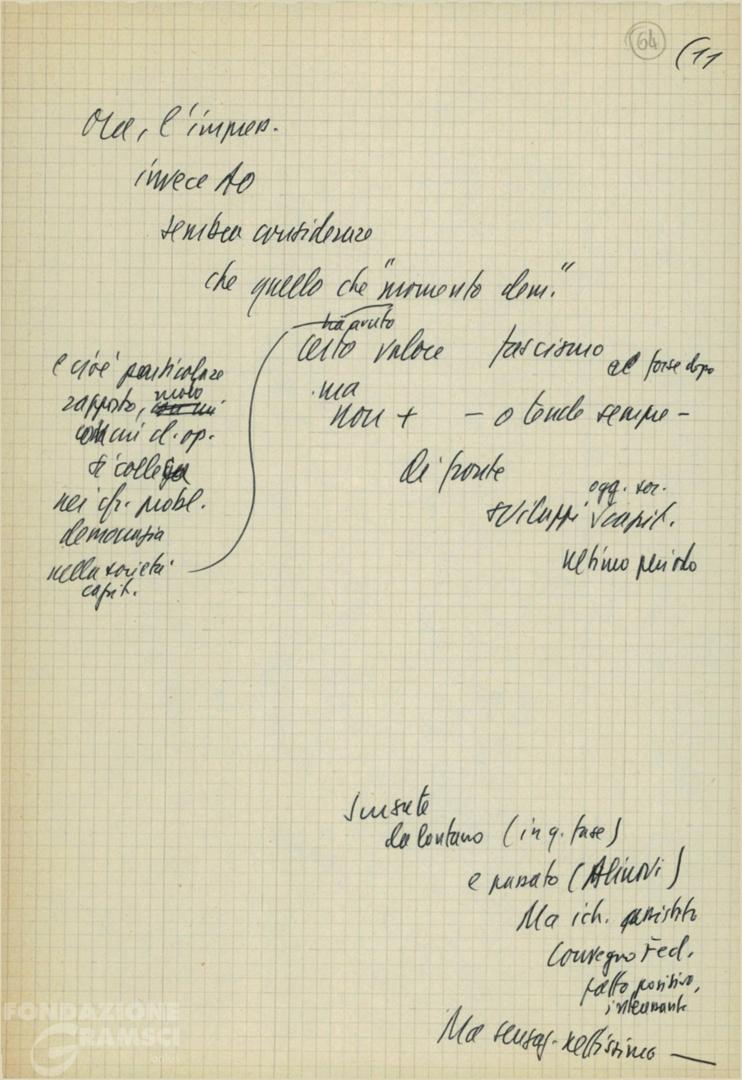 64
(11
Ora, l'impres.
invece Ao
sembra considerare
che quello che "momento dem."
ha avuto
certo valore fascismo e forse dopo
ma
non + - o tende sempre -
di fronte
ogg. soc.
sviluppi √ capit.
ultimo periodo
e cioè particolare
rapporto, modo
con cui cl. op.
si collega
nei cfr. probl.
democrazia
nella società
capit.
da lontano (in q. fase)
e passato (Alinovi)
Ma ich.
Convegno Fed.
fatto positivo,
interessante
Ma sensaz. nettissima —
FONDAZIONE
GRAMSCI